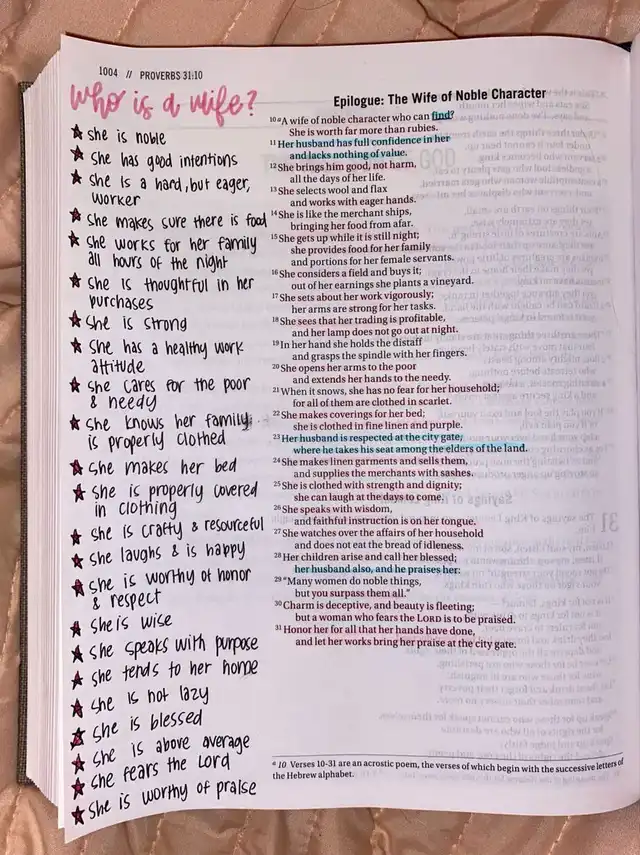 1004 // PROVERBS 31:10
who is a wife?
★ she is noble
★ she has good intentions
★ she is a hard, but eager,
worker
★ she makes sure there is food
★ she works for her family
all hours of the night
★ she is thoughtful in her
purchases
★ she is strong
★ she has a healthy work
attitude
★ she cares for the poor
& needy
★ she knows her family
is properly clothed
★ she makes her bed
★ she is properly covered
in clothing
★ she is crafty & resourceful
★ she laughs & is happy
★ she is worthy of honor
& respect
★ she is wise
★ she speaks with purpose
★ she tends to her home
★ she is not lazy
★ she is blessed
★ she is above average
★ she fears the Lord
★ she is worthy of praise
Epilogue: The Wife of Noble Character
10 a A wife of noble character who can find?
She is worth far more than rubies.
11 Her husband has full confidence in her
and lacks nothing of value.
12 She brings him good, not harm,
all the days of her life.
13 She selects wool and flax
and works with eager hands.
14 She is like the merchant ships,
bringing her food from afar.
15 She gets up while it is still night;
she provides food for her family
and portions for her female servants.
16 She considers a field and buys it;
out of her earnings she plants a vineyard.
17 She sets about her work vigorously;
her arms are strong for her tasks.
18 She sees that her trading is profitable,
and her lamp does not go out at night.
19 In her hand she holds the distaff
and grasps the spindle with her fingers.
20 She opens her arms to the poor
and extends her hands to the needy.
21 When it snows, she has no fear for her household;
for all of them are clothed in scarlet.
22 She makes coverings for her bed;
she is clothed in fine linen and purple.
23 Her husband is respected at the city gate,
where he takes his seat among the elders of the land.
24 She makes linen garments and sells them,
and supplies the merchants with sashes.
25 She is clothed with strength and dignity;
she can laugh at the days to come.
26 She speaks with wisdom,
and faithful instruction is on her tongue.
27 She watches over the affairs of her household
and does not eat the bread of idleness.
28 Her children arise and call her blessed;
her husband also, and he praises her:
29 "Many women do noble things,
but you surpass them all."
30 Charm is deceptive, and beauty is fleeting;
but a woman who fears the LORD is to be praised.
31 Honor her for all that her hands have done,
and let her works bring her praise at the city gate.
a 10 Verses 10-31 are an acrostic poem, the verses of which begin with the successive letters of
the Hebrew alphabet.